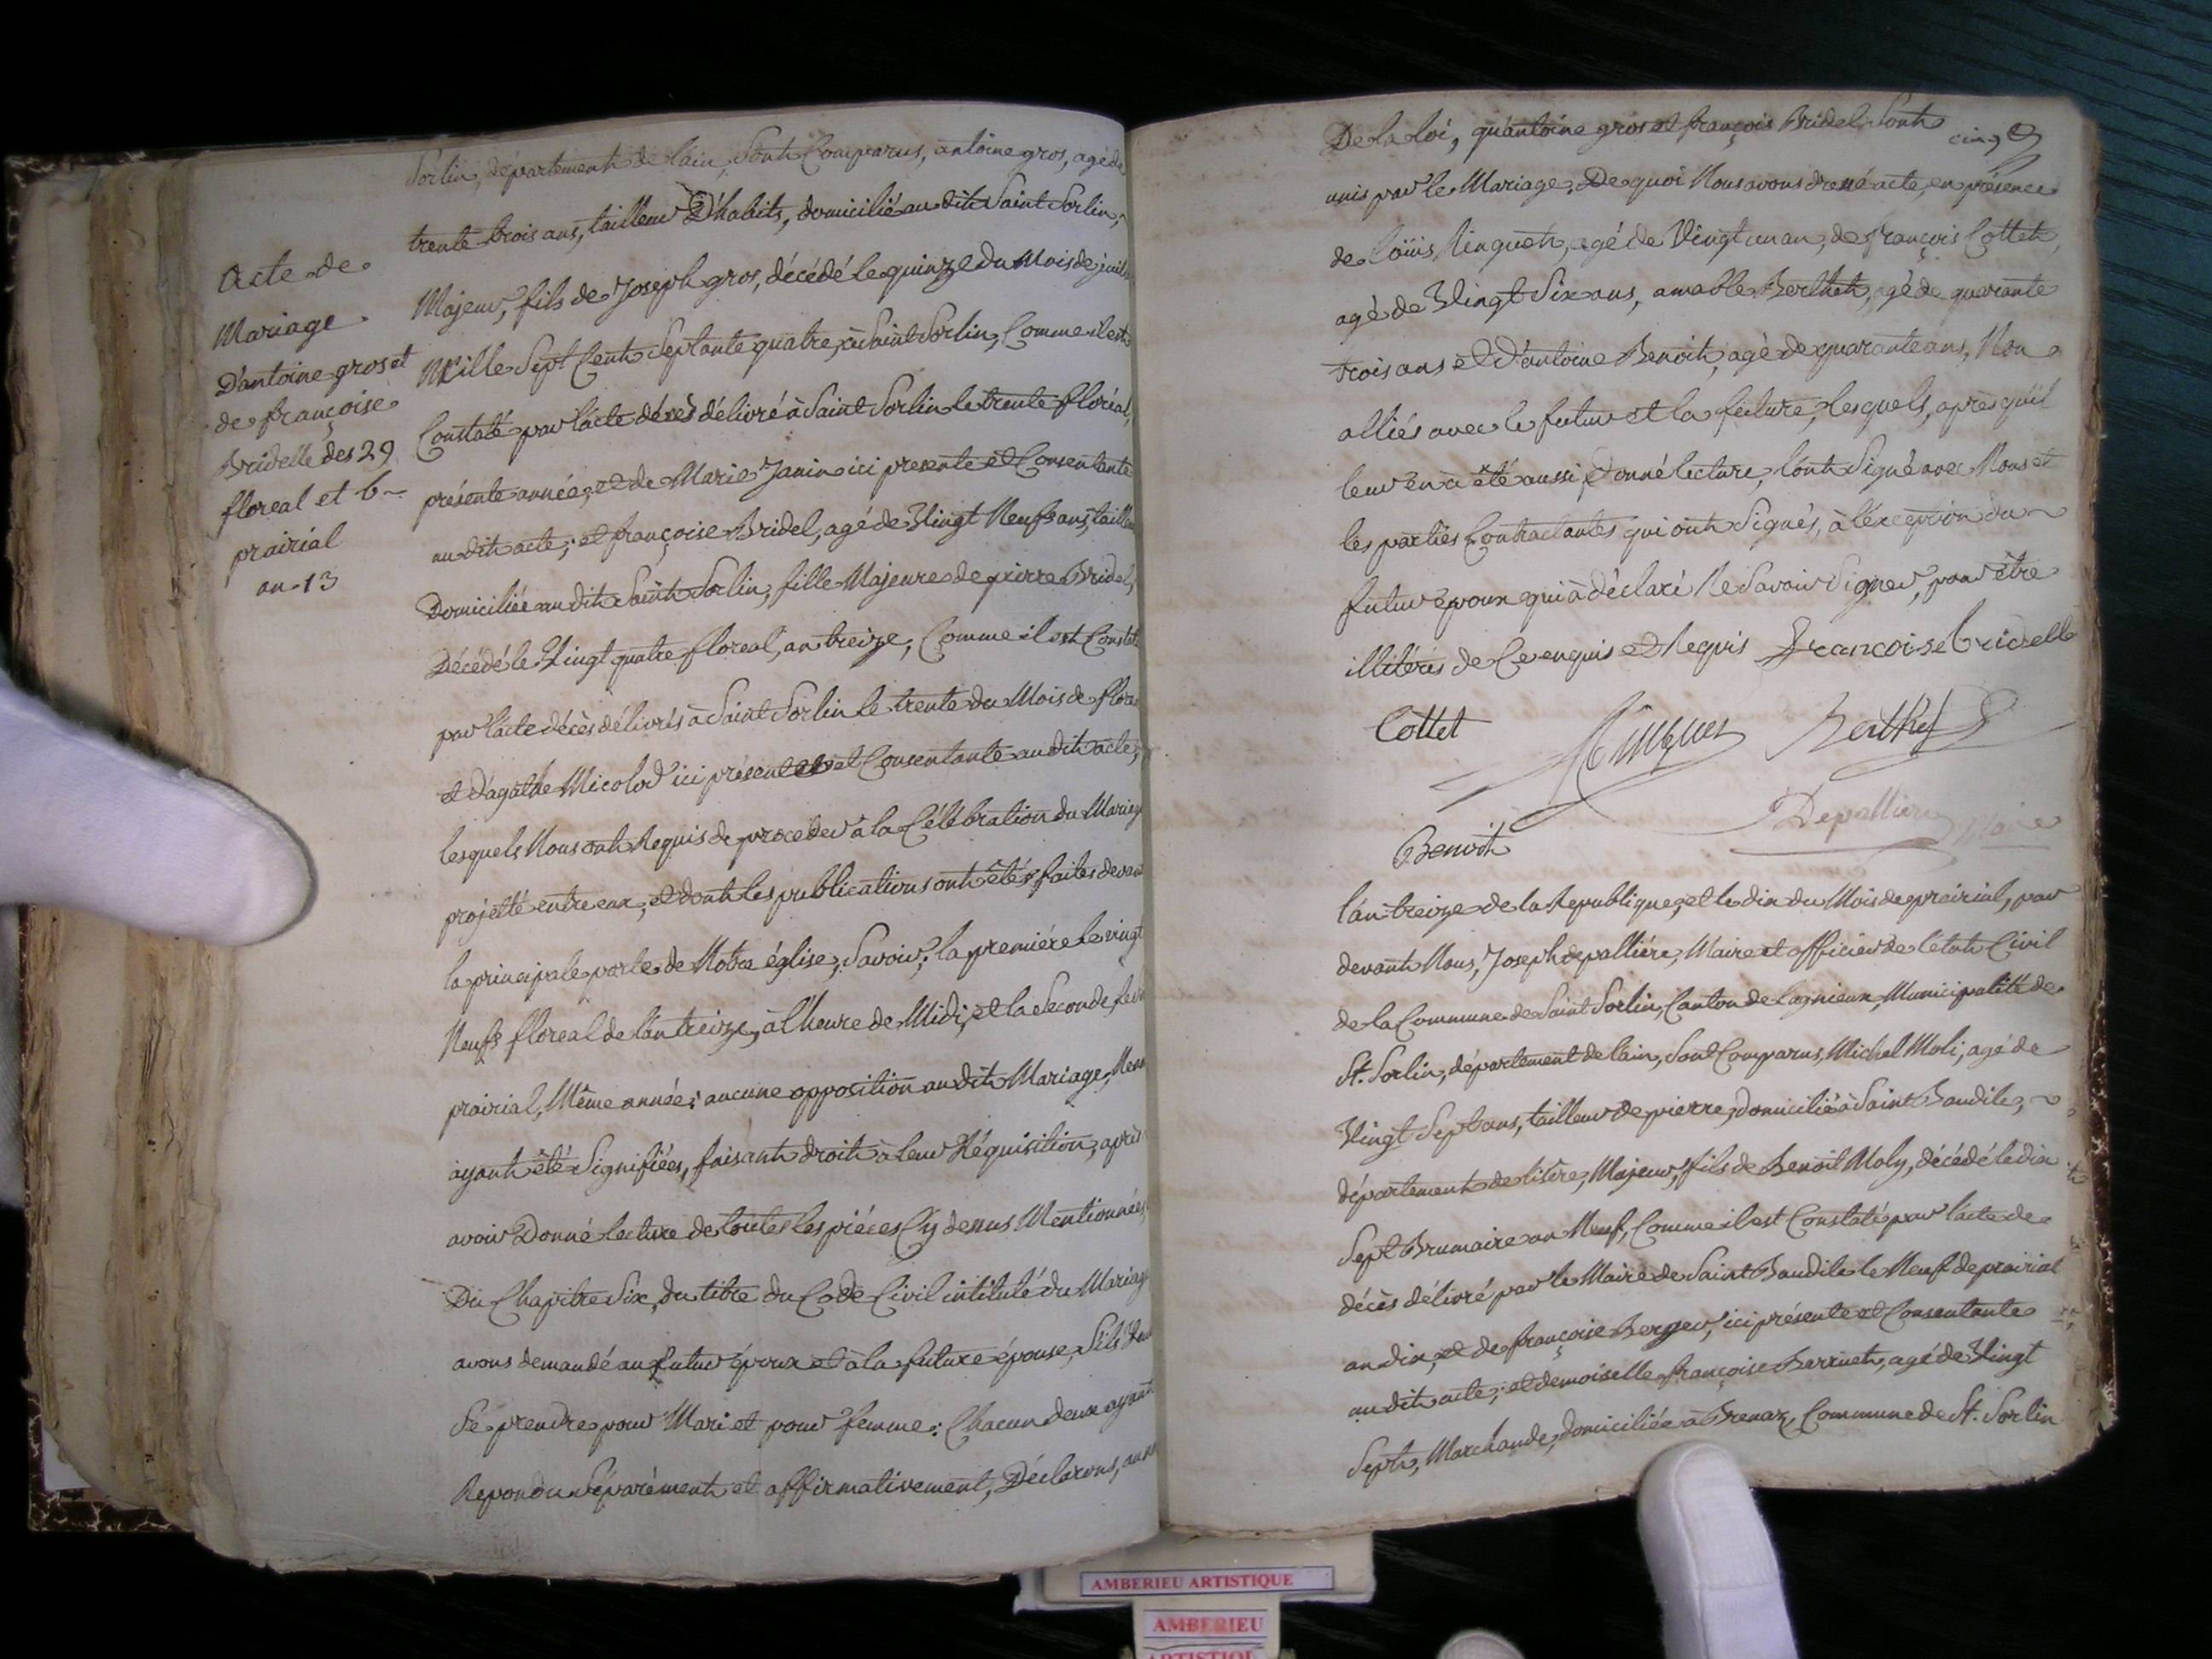 Sorlin, département de lain, Sont Comparus, antoine gros, agé de
trente trois ans, tailleur D'habits, domicilié au dit Saint Sorlin,
Acte de
Mariage
D'antoine gros et
de françoise
Bridelle des 29
floreal et 6
prairial
an 13
Majeur, fils de Joseph gros, décédé le quinze du Mois de juil
Mille Sept Cent Septante quatre, à Saint Sorlin, Comme il est
Constaté par l'acte décès délivré à Saint Sorlin le trente floréal,
présente année, et de Marie Janin ici presente et Consentante
au dit acte; et françoise Bridel, agé de Vingt Neufs ans, taill
Domiciliée au dit Saint Sorlin, fille Majeure de pierre Bridel,
Décédé le Vingt quatre floreal, an treize, Comme il est Constat
par l'acte décès délivrés à Saint Sorlin le trente du Mois de flore
et d'agathe Micolod ici présente et Consentante au dit acte;
lesquels Nous ont Requis de proceder à la Célébration du Mariag
projetté entre eux, et dont les publications ont étés faites devan
la principale porte de Notre église, Savoir; la premiére le vingt
Neufs floreal de l'an treize, à l'heure de Midi, et la Seconde, le
prairial, Même année; aucune opposition au dit Mariage, Nen
ayant été Signifiées, faisant droit à leur Réquisition, aprè
avoir Donné lecture de toutes les piéces Cy dessus Mentionnées,
Du Chapitre Six, du titre du Code Civil intitulé du Mariag
avons demandé au futur époux et à la future épouse, S'ils Veu
Se prendre pour Mari et pour femme: Chacun deux ayant
Repondu Séparément et affirmativement, Déclarons, au
De la Loi, qu'antoine gros et françois Bridel, Sont
cinq
unis par le Mariage, De quoi Nous avons dressé acte, en présence
de Loüis Ringuet, agé de Vingt un an, de françois Cottet,
agé de Vingt Six ans, amable Berthet, agé de quarante
trois ans et d'antoine Benoit, agé de quarante ans, Non
alliés avec le futur et la future, lesquels, apres qu'il
leur en à été aussi, Donné lecture, l'ont Signé avec Nous et
les parties Contractantes qui ont Signés, à l'éxception du
futur époux qui à déclaré Ne Savoir Signer, pour être
illitéris de Ce enquis et Requis Francoise bridelle
Cottet Ringuet Berthet
Benoit Depalliere Maire
l'an treize de la Republique, et le dix du Mois de prairial, par
devant Nous, Joseph depalliére, Maire et officier de l'état Civil
de la Commune de Saint Sorlin, Canton de Lagnieux, Municipalité de
St. Sorlin, département de lain, Sont Comparus, Michel Moli, agé de
Vingt Sept ans, tailleur de pierre, domicilié à Saint Baudile,
département de lisére, Majeur, fils de Benoit Moly, décédé le dix
Sept Brumaire an Neuf, Comme il est Constaté par l'acte de
décès délivré par le Maire de Saint Baudile le Neuf de prairial
an dix, et de françoise Berger, ici présente et Consentante
au dit acte; et demoiselle françoise Barruet, agé de Vingt
Sept, Marchande, domiciliée à Brenaz, Commune de St. Sorlin
AMBERIEU ARTISTIQUE
AMBERIEU